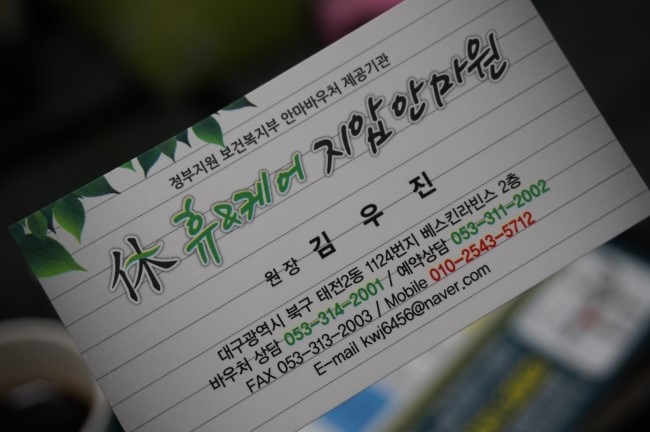 정부지원 보건복지부 안마바우처 제공기관
休 휴&케어 지압안마원
원장 김 우 진
대구광역시 북구 태전2동 1124번지 베스킨라빈스 2층
바우처 상담 053-314-2001 / 예약상담 053-311-2002
FAX 053-313-2003 / Mobile 010-2543-5712
E-mail kwj6456@naver.com